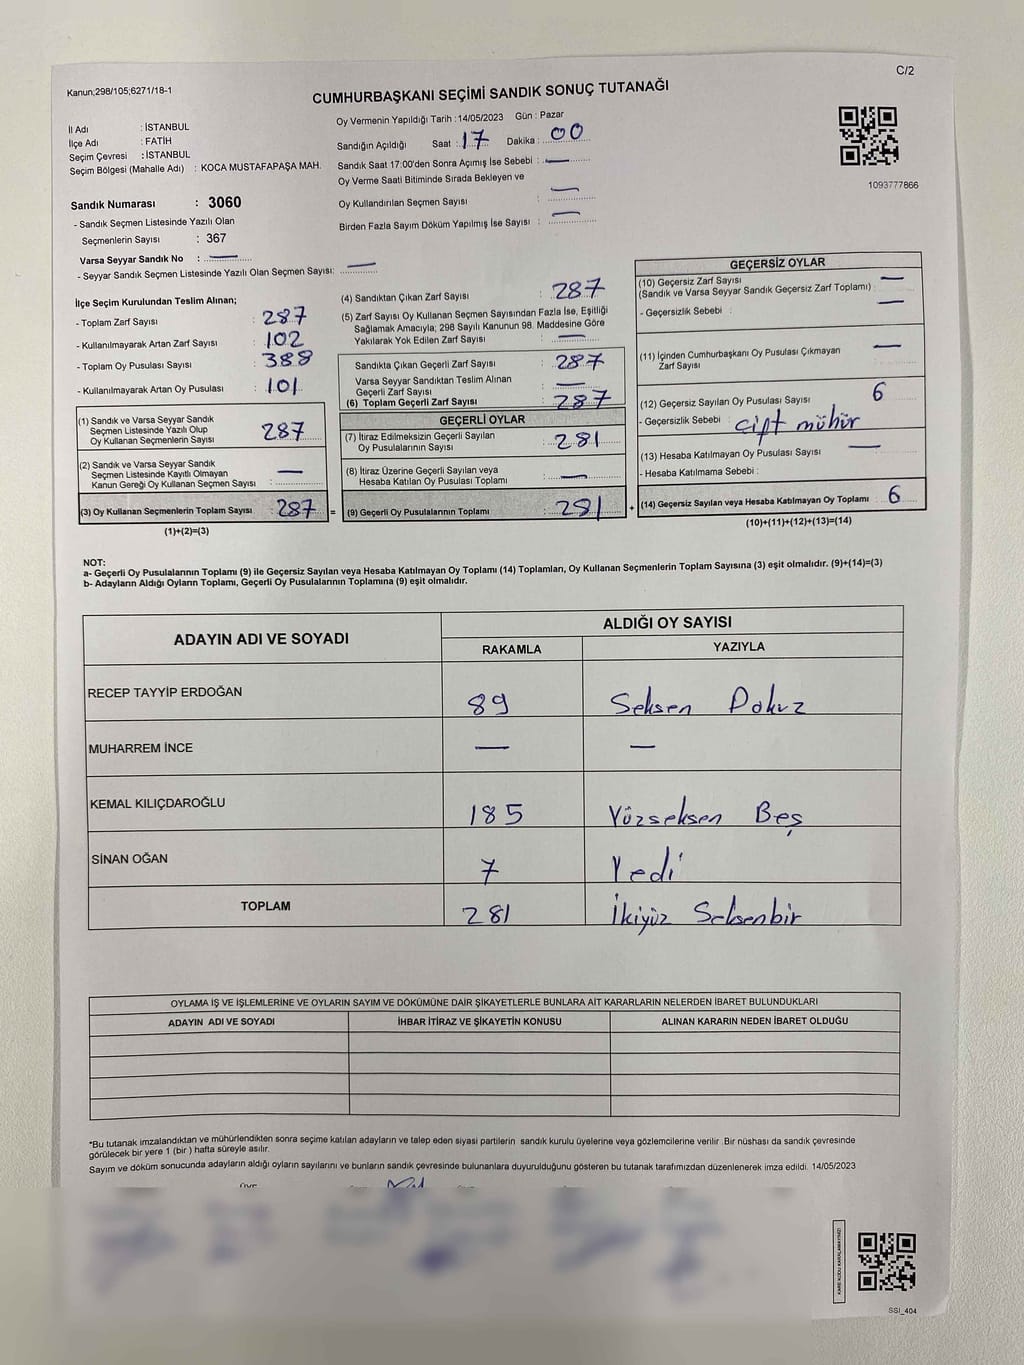 Kanun;298/105;6271/18-1
C/2
CUMHURBAŞKANI SEÇİMİ SANDIK SONUÇ TUTANAĞI
İl Adı : İSTANBUL
İlçe Adı : FATİH
Seçim Çevresi : İSTANBUL
Seçim Bölgesi (Mahalle Adı) : KOCA MUSTAFAPAŞA MAH.
Sandık Numarası : 3060
- Sandık Seçmen Listesinde Yazılı Olan
Seçmenlerin Sayısı : 367
Varsa Seyyar Sandık No : —
- Seyyar Sandık Seçmen Listesinde Yazılı Olan Seçmen Sayısı: —
Oy Vermenin Yapıldığı Tarih :14/05/2023 Gün : Pazar
Sandığın Açıldığı Saat : 17 Dakika : 00
Sandık Saat 17:00'den Sonra Açımış İse Sebebi : —
Oy Verme Saati Bitiminde Sırada Bekleyen ve
Oy Kullandırılan Seçmen Sayısı : —
Birden Fazla Sayım Döküm Yapılmış İse Sayısı : —
1093777866
İlçe Seçim Kurulundan Teslim Alınan;
- Toplam Zarf Sayısı : 287
- Kullanılmayarak Artan Zarf Sayısı : 102
- Toplam Oy Pusulası Sayısı : 388
- Kullanılmayarak Artan Oy Pusulası : 101
(1) Sandık ve Varsa Seyyar Sandık
Seçmen Listesinde Yazılı Olup
Oy Kullanan Seçmenlerin Sayısı : 287
(2) Sandık ve Varsa Seyyar Sandık
Seçmen Listesinde Kayıtlı Olmayan
Kanun Gereği Oy Kullanan Seçmen Sayısı : —
(3) Oy Kullanan Seçmenlerin Toplam Sayısı : 287 =
(1)+(2)=(3)
(4) Sandıktan Çıkan Zarf Sayısı : 287
(5) Zarf Sayısı Oy Kullanan Seçmen Sayısından Fazla İse, Eşitliği
Sağlamak Amacıyla; 298 Sayılı Kanunun 98. Maddesine Göre
Yakılarak Yok Edilen Zarf Sayısı : —
Sandıkta Çıkan Geçerli Zarf Sayısı : 287
Varsa Seyyar Sandıktan Teslim Alınan
Geçerli Zarf Sayısı : —
(6) Toplam Geçerli Zarf Sayısı : 287
GEÇERLİ OYLAR
(7) İtiraz Edilmeksizin Geçerli Sayılan
Oy Pusulalarının Sayısı : 281
(8) İtiraz Üzerine Geçerli Sayılan veya
Hesaba Katılan Oy Pusulası Toplamı : —
(9) Geçerli Oy Pusulalarının Toplamı : 281 +
GEÇERSİZ OYLAR
(10) Geçersiz Zarf Sayısı
(Sandık ve Varsa Seyyar Sandık Geçersiz Zarf Toplamı) : —
- Geçersizlik Sebebi : —
(11) İçinden Cumhurbaşkanı Oy Pusulası Çıkmayan
Zarf Sayısı : —
(12) Geçersiz Sayılan Oy Pusulası Sayısı : 6
- Geçersizlik Sebebi : çipt mühür
(13) Hesaba Katılmayan Oy Pusulası Sayısı : —
- Hesaba Katılmama Sebebi :
(14) Geçersiz Sayılan veya Hesaba Katılmayan Oy Toplamı : 6
(10)+(11)+(12)+(13)=(14)
NOT:
a- Geçerli Oy Pusulalarının Toplamı (9) ile Geçersiz Sayılan veya Hesaba Katılmayan Oy Toplamı (14) Toplamları, Oy Kullanan Seçmenlerin Toplam Sayısına (3) eşit olmalıdır. (9)+(14)=(3)
b- Adayların Aldığı Oyların Toplamı, Geçerli Oy Pusulalarının Toplamına (9) eşit olmalıdır.
ADAYIN ADI VE SOYADI
ALDIĞI OY SAYISI
RAKAMLA YAZIYLA
RECEP TAYYİP ERDOĞAN 89 Seksen Dokuz
MUHARREM İNCE — —
KEMAL KILIÇDAROĞLU 185 Yüzseksen Beş
SİNAN OĞAN 7 Yedi
TOPLAM 281 İkiyüz Seksenbir
OYLAMA İŞ VE İŞLEMLERİNE VE OYLARIN SAYIM VE DÖKÜMÜNE DAİR ŞİKAYETLERLE BUNLARA AİT KARARLARIN NELERDEN İBARET BULUNDUKLARI
ADAYIN ADI VE SOYADI İHBAR İTİRAZ VE ŞİKAYETİN KONUSU ALINAN KARARIN NEDEN İBARET OLDUĞU
*Bu tutanak imzalandıktan ve mühürlendikten sonra seçime katılan adayların ve talep eden siyasi partilerin sandık kurulu üyelerine veya gözlemcilerine verilir .Bir nüshası da sandık çevresinde
görülecek bir yere 1 (bir ) hafta süreyle asılır.
Sayım ve döküm sonucunda adayların aldığı oyların sayılarını ve bunların sandık çevresinde bulunanlara duyurulduğunu gösteren bu tutanak tarafımızdan düzenlenerek imza edildi. 14/05/2023
SSI_404